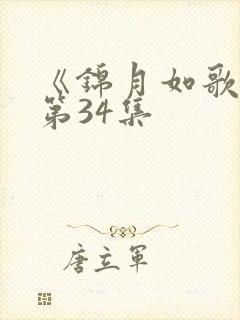 《锦月如歌
第34集
唐立军